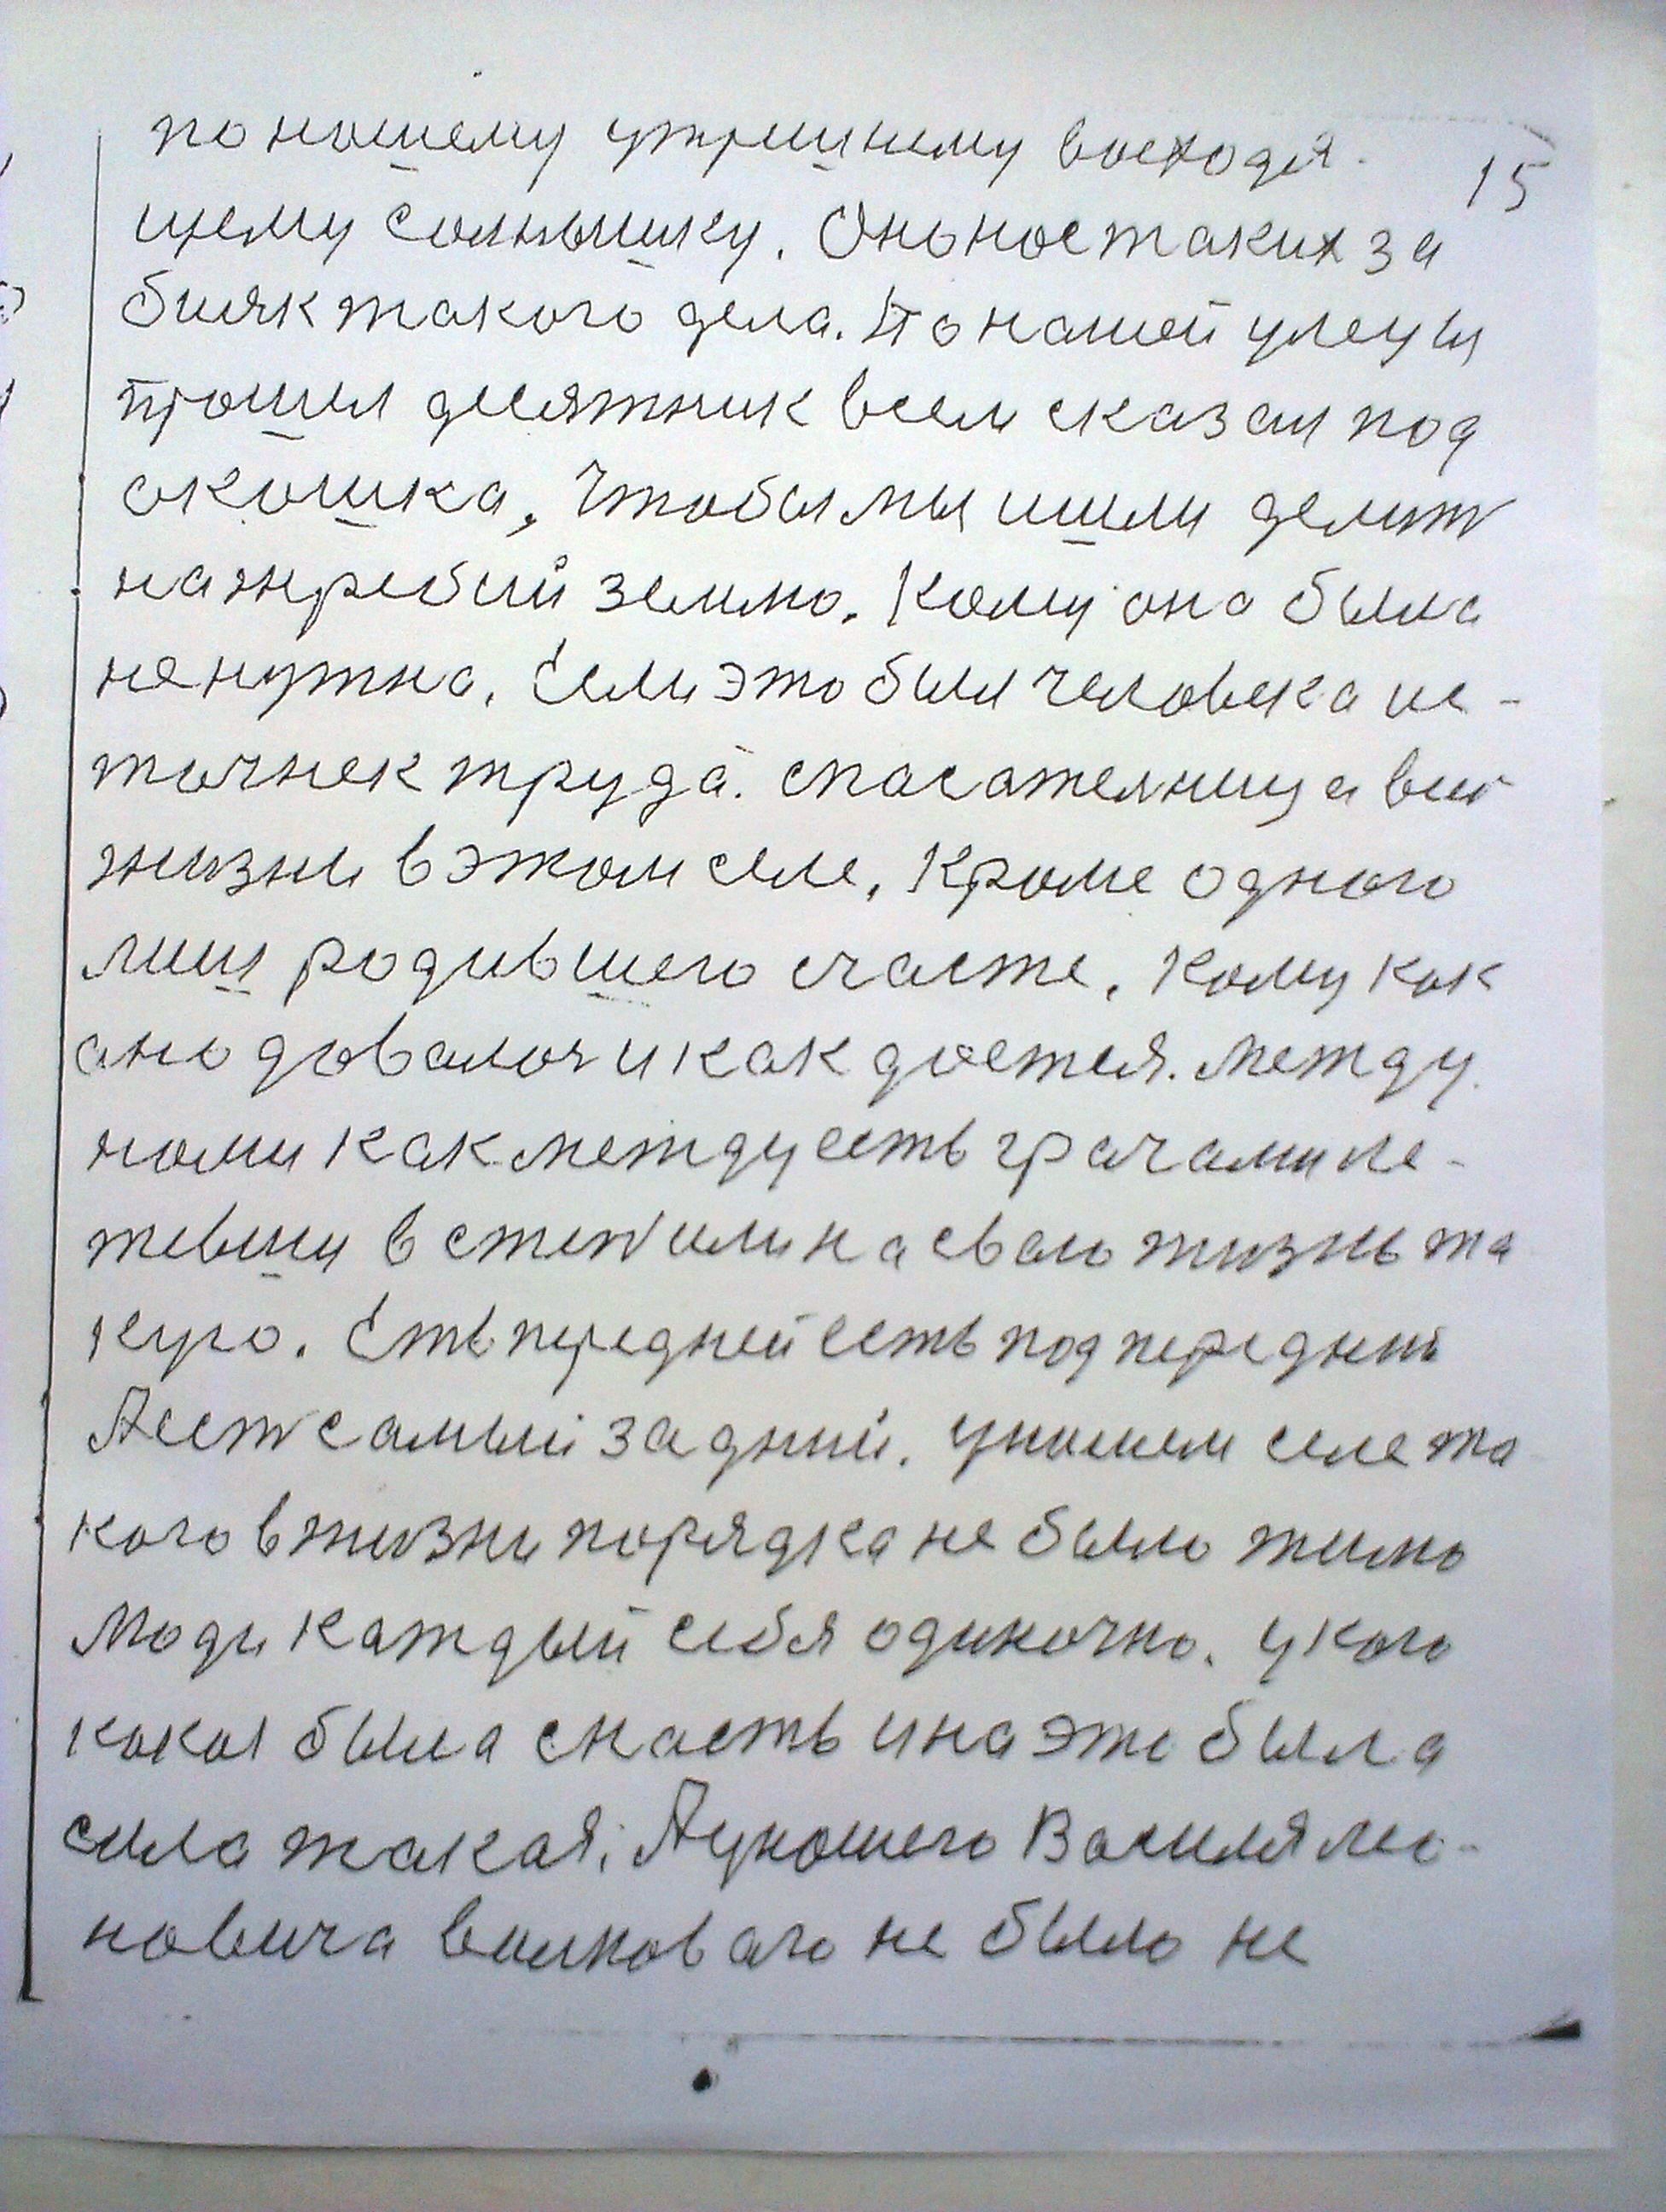 по нашему утришнему восходя-
15
щему солнышку. Оно нас таких за
бияк такого дела. По нашей улецы
прошел десятник всем сказал под
окошка, чтобы мы ишли делит
на жребий землю. Кому она была
не нужна. Если это был человека ис-
точнек труда. спасателница вей
жизни в этом селе, Кроме одного
лиш родившего счасте. Кому как
оно довалось и как достся. Между
нами как между есть грачами ле-
тевши в степ или на свою жизнь та
кую. Есть передней есть подпередний
А ест самый задний. У нашем селе та
кого в жизни порядка не было жило
люди каждый себя одиночно. У кого
какая была снасть и на эта была
сила такая. А у нашего Василя ле-
новича волковаго не было не